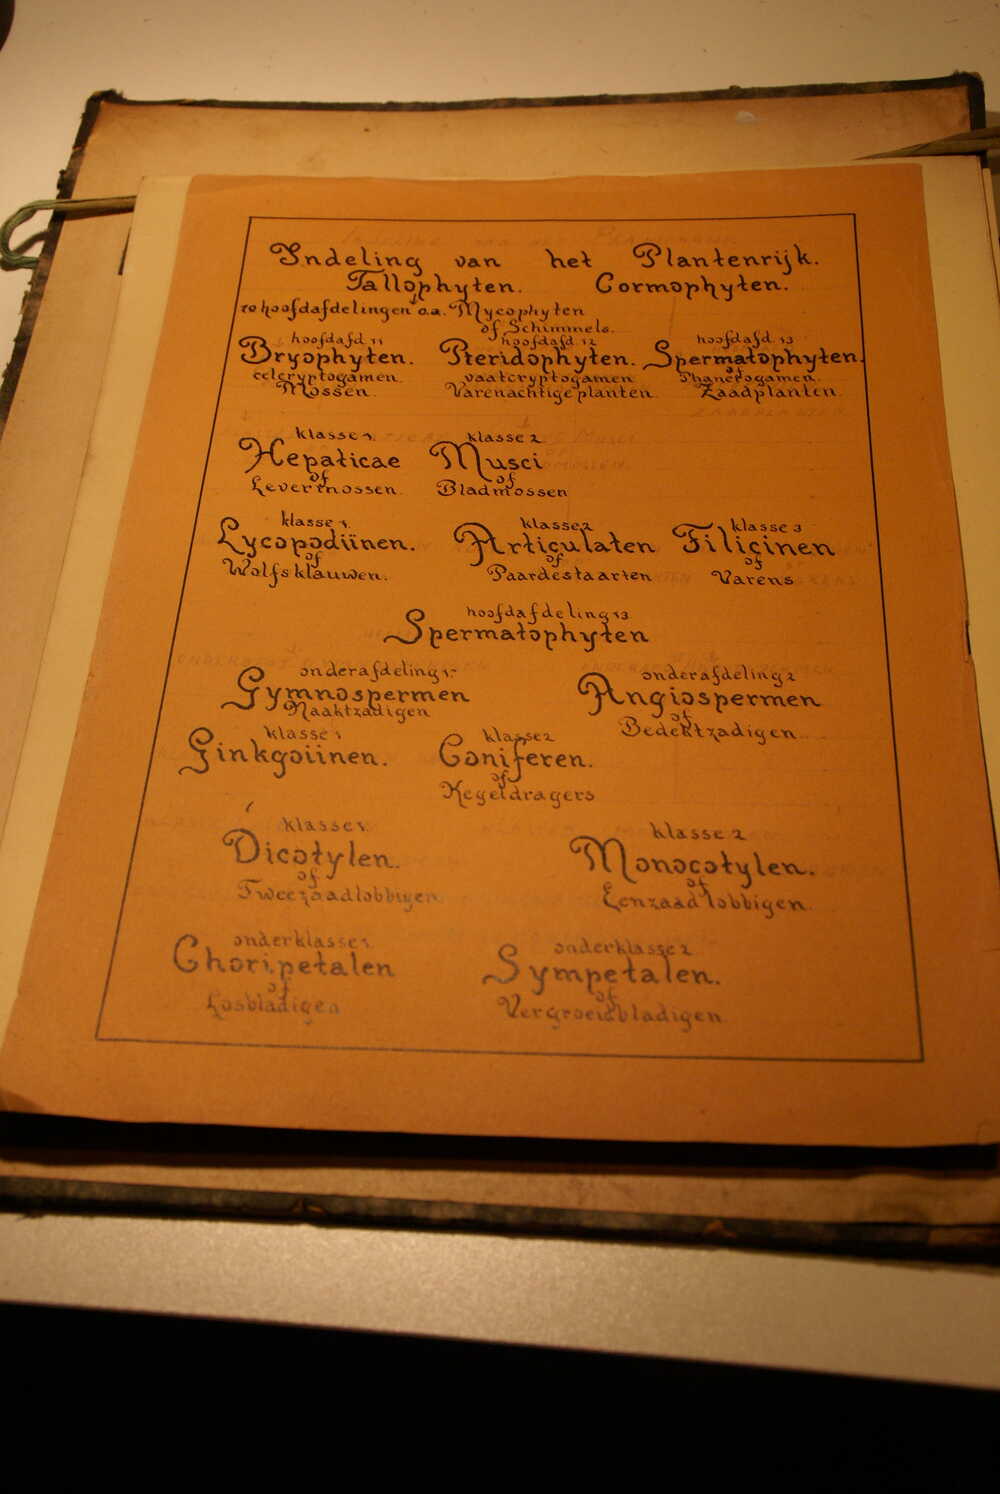 Indeling van het Plantenrijk.
Tallophyten. Cormophyten.
10 hoofdafdelingen o.a. Mycophyten
of Schimmels.
hoofdafd 11 hoofdafd. 12 hoofdafd. 13
Bryophyten. Pteridophyten. Spermatophyten.
of
celcryptogamen. vaatcryptogamen Phanerogamen.
Mossen. Varenachtige planten. Zaadplanten.
klasse 1. klasse 2
Hepaticae Musci
of of
Levermossen. Bladmossen
klasse 1. klasse 2 klasse 3
Lycopodiïnen. Articulaten Filicinen
of of of
Wolfsklauwen. Paardestaarten Varens
hoofdafdeling 13
Spermatophyten
onderafdeling 1. onderafdeling 2
Gymnospermen Angiospermen
of
Naaktzadigen Bedektzadigen
klasse 1 klasse 2
Ginkgoiinen. Coniferen.
of
Kegeldragers
klasse 1. klasse 2
Dicotylen. Monocotylen.
of of
Tweezaadlobbigen Eenzaadlobbigen.
onderklasse 1. onderklasse 2
Choripetalen Sympetalen.
of of
Losbladigen Vergroeidbladigen